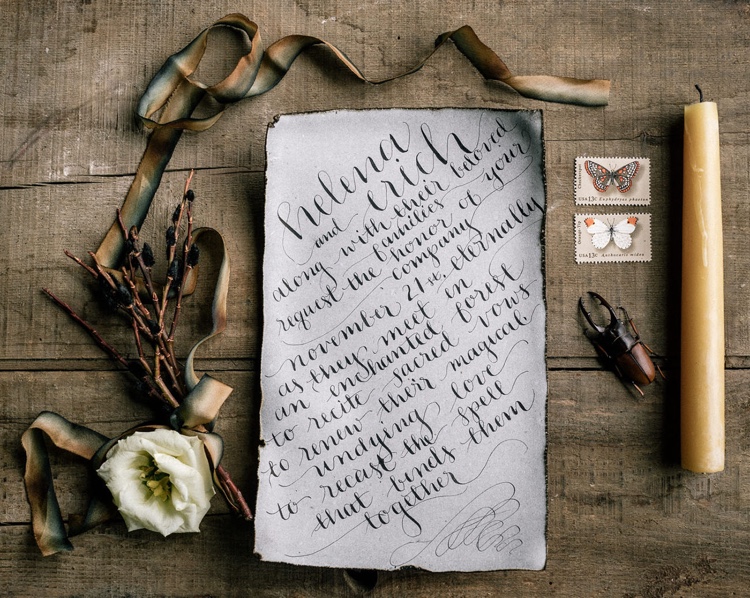 helena
and erich
along with their beloved
families
request the honor of your
company
november 21st, eternally
as they meet in
an enchanted forest
to recite sacred vows
to renew their magical
undying love
to recast the spell
that binds them
together
USA13c Euphydryas phaeton
USA13c